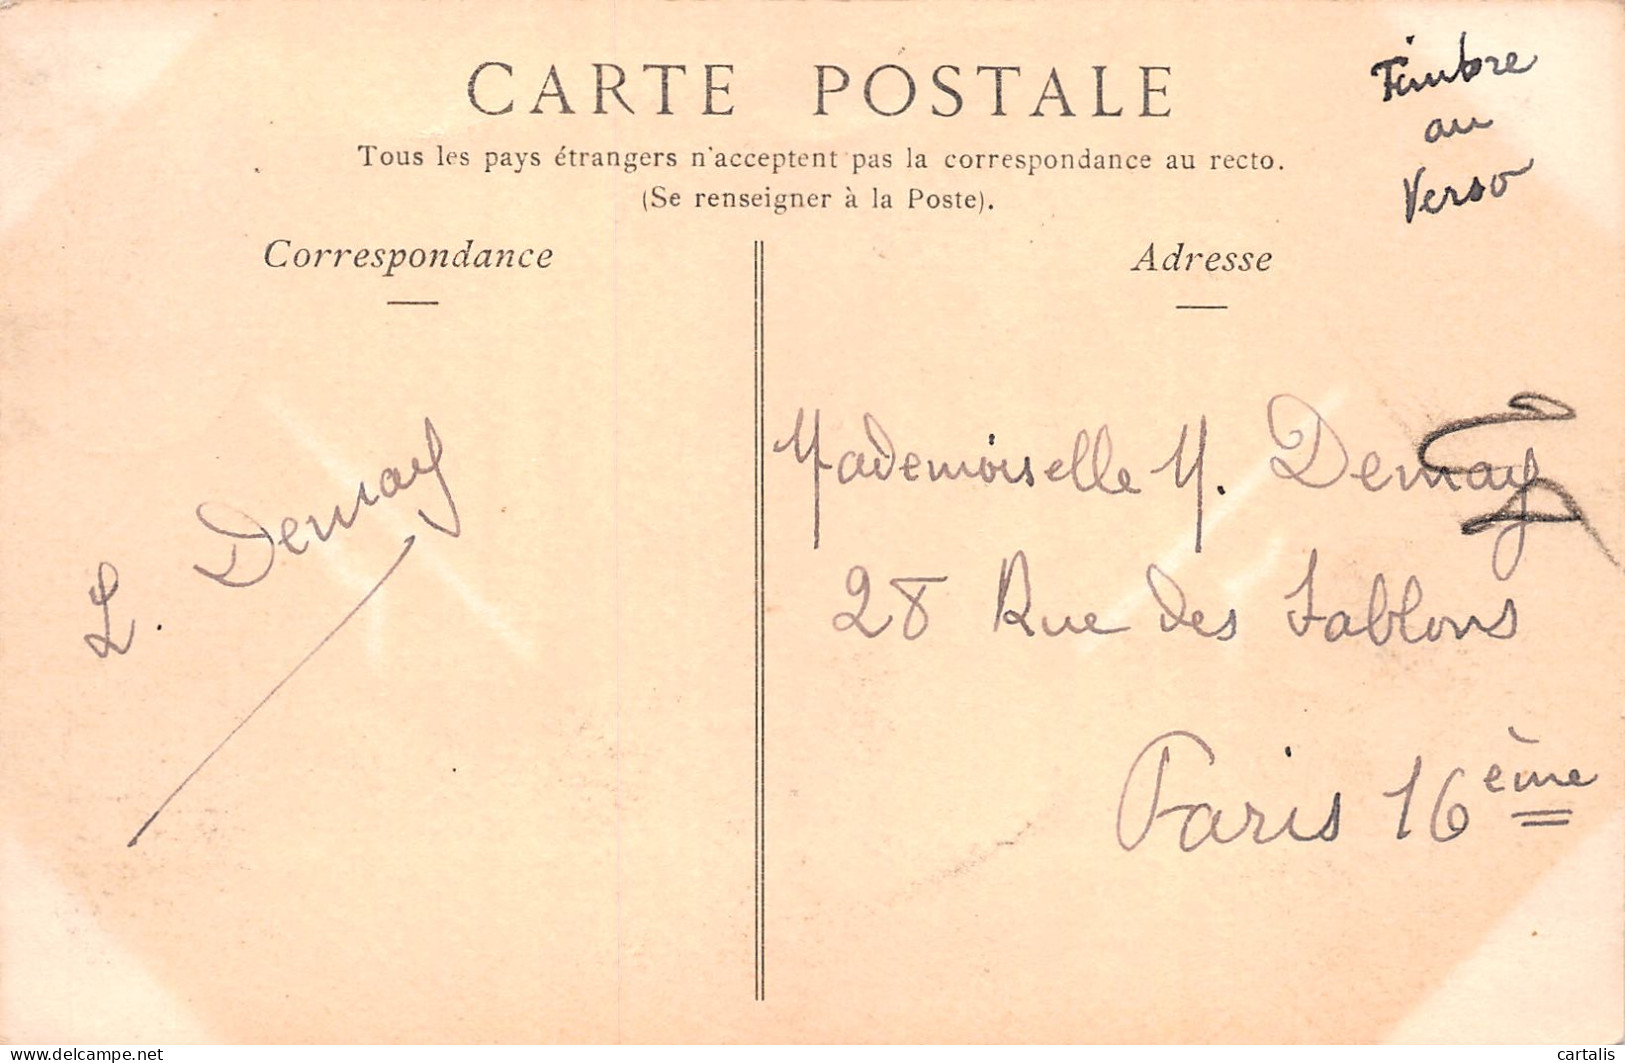 CARTE POSTALE
Tous les pays étrangers n'acceptent pas la correspondance au recto.
(Se renseigner à la Poste).
Timbre
au
Verso
Correspondance
Adresse
L. Demay
Mademoiselle M. Demay
28 Rue des Sablons
Paris 16ème
www.delcampe.net
cartalis